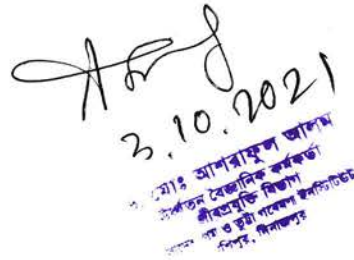 3.10.2021
মোঃ আশরাফুল আলম
ঊর্ধ্বতন বৈজ্ঞানিক কর্মকর্তা
জীবপ্রযুক্তি বিভাগ
গম ও ভুট্টা গবেষণা ইনস্টিটিউট
দিনাজপুর